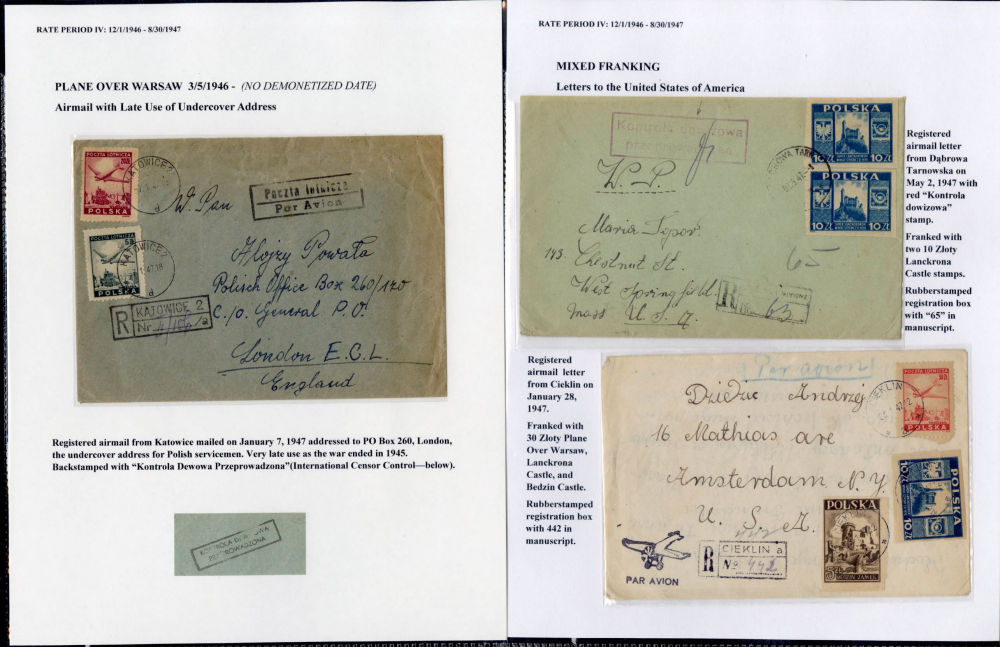 RATE PERIOD IV: 12/1/1946 - 8/30/1947
PLANE OVER WARSAW 3/5/1946 - (NO DEMONETIZED DATE)
Airmail with Late Use of Undercover Address
POCZTA LOTNICZA
POLSKA
KATOWICE 2
a
W. Pan
Poczta lotnicza
Par Avion
POCZTA LOTNICZA
POLSKA
KATOWICE 2
47.18
a
Alojzy Powała
Polisch Office Box 260/120
C./o. General P.O.
London E.C.1.
England
R
KATOWICE 2
Nr
a
Registered airmail from Katowice mailed on January 7, 1947 addressed to PO Box 260, London,
the undercover address for Polish servicemen. Very late use as the war ended in 1945.
Backstamped with “Kontrola Dewowa Przeprowadzona”(International Censor Control—below).
KONTROLA DEWIZOWA
PRZEPROWADZONA
RATE PERIOD IV: 12/1/1946 - 8/30/1947
MIXED FRANKING
Letters to the United States of America
Kontrola dewizowa
POLSKA
10 ZŁ 10 ZŁ
POLSKA
10 ZŁ 10 ZŁ
W.P.
Maria Topor
143. Chestnut St.
West Springfild.
Mass U. S. A.
65
R
No. 65
Registered
airmail letter
from Dąbrowa
Tarnowska on
May 2, 1947 with
red “Kontrola
dowizowa”
stamp.
Franked with
two 10 Złoty
Lanckrona
Castle stamps.
Rubberstamped
registration box
with “65” in
manuscript.
Registered
airmail letter
from Cieklin on
January 28,
1947.
Franked with
30 Złoty Plane
Over Warsaw,
Lanckrona
Castle, and
Bedzin Castle.
Rubberstamped
registration box
with 442 in
manuscript.
Par avion
Dziedzic Andrzej
16 Mathias ave
Amsterdam N.Y.
U. S. A.
POCZTA LOTNICZA
POLSKA
CIEKLIN
POLSKA
10 ZŁ 10 ZŁ
POLSKA
5 ZŁ
BĘDZIN ZAMEK
PAR AVION
R
CIEKLIN a
No 442